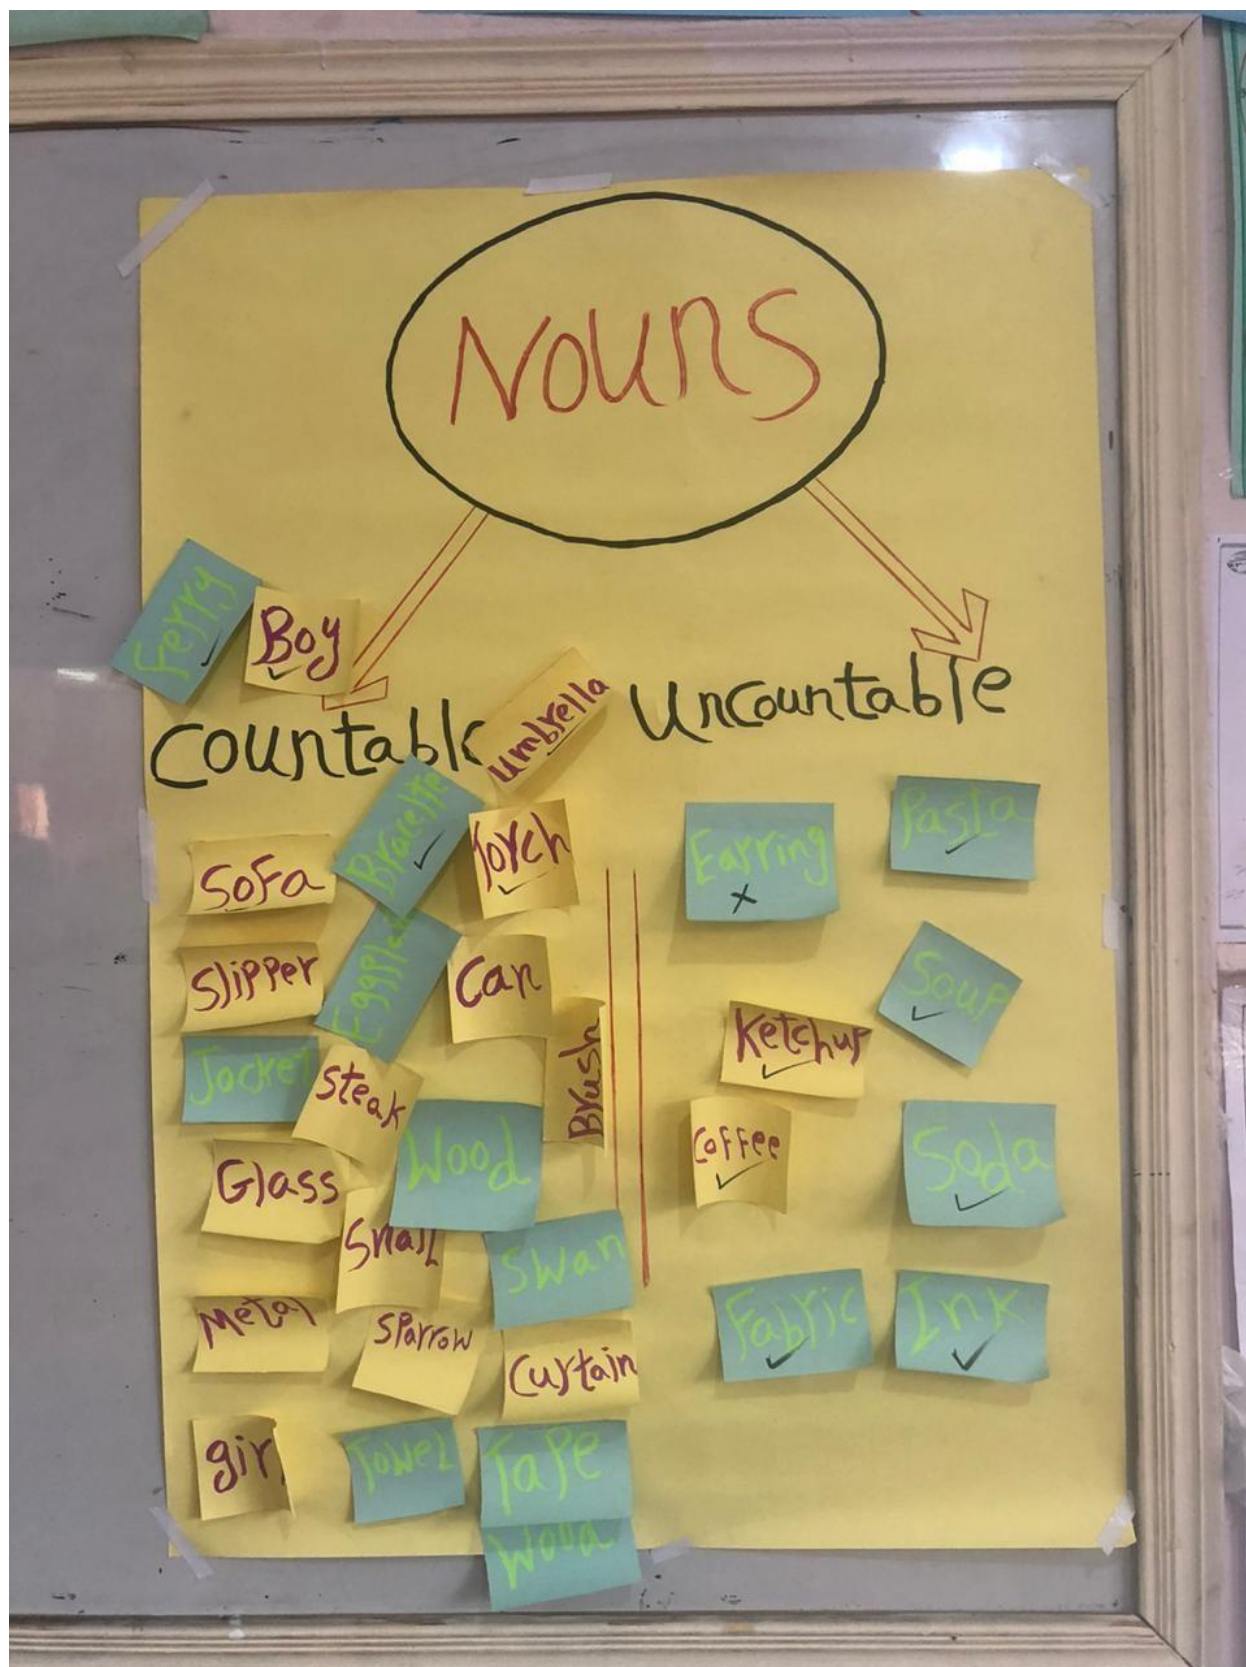 Nouns
Ferry
Boy
Countable
umbrella
Uncountable
Bracelte
Torch
Sofa
Slipper
Can
Jacket
Steak
Brush
Wood
Glass
Snail
Swan
Metal
Sparrow
Curtain
girl
Towel
Tape
Wood
Earring
Pasta
Soup
Ketchup
Coffee
Soda
Fabric
Ink